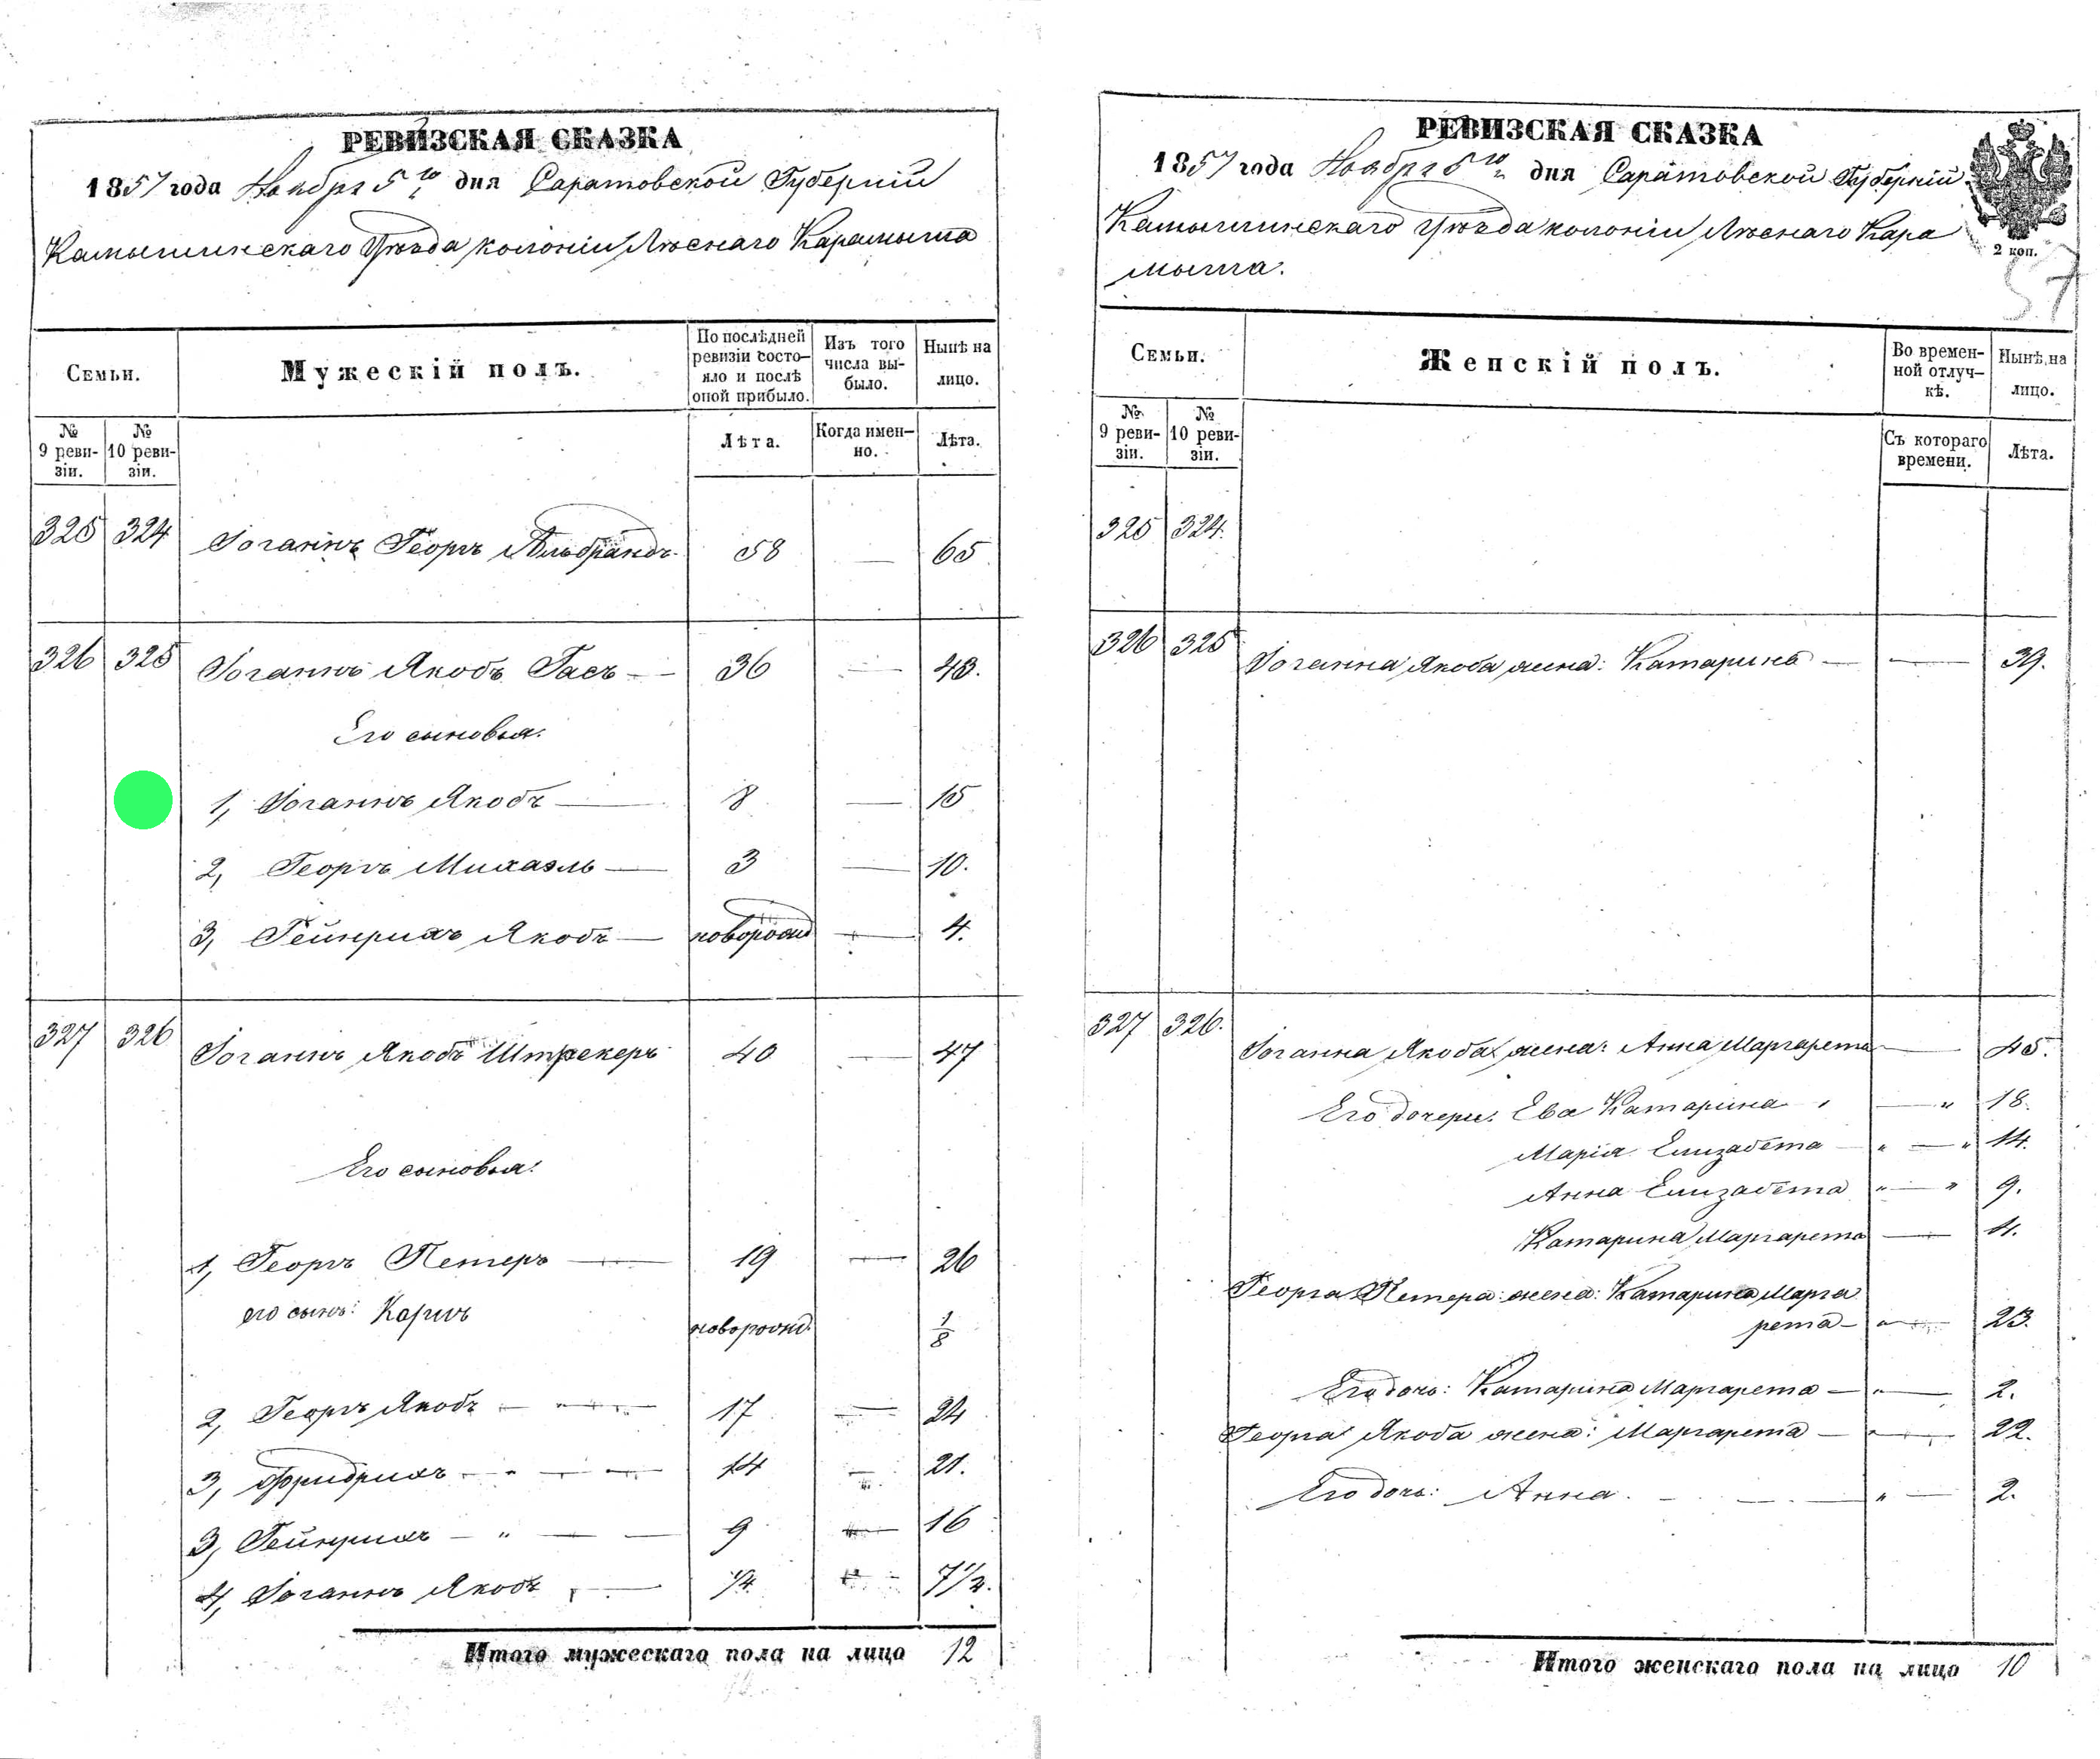 РЕВИЗСКАЯ СКАЗКА
1857 года Ноября 5го дня Саратовской Губерніи
Камышинскаго Уѣзда колоніи Лѣснаго Карамыша
Семьи.
Мужескій полъ.
По послѣдней ревизіи состо-
яло и послѣ оной прибыло.
Изъ того числа вы-
было.
Нынѣ на лицо.
№ 9 реви-
зіи.
№ 10 реви-
зіи.
Лѣта.
Когда имен-
но.
Лѣта.
325 324 Іоганнъ Георгъ Гильбрандъ 58 — 65
326 325 Іоганнъ Якобъ Гасъ — 36 — 43.
Его сыновья:
1, Іоганнъ Якобъ — 8 — 15
2, Георгъ Михаэль — 3 — 10.
3, Гейнрихъ Якобъ — новорожд — 4.
327 326 Іоганнъ Якобъ Штрекеръ 40 — 47
Его сыновья:
1, Георгъ Петеръ — 19 — 26
его сынъ: Карлъ новорожд. 1/8
2, Георгъ Якобъ — 17 — 24
3, Фридрихъ — 14 — 21.
3, Гейнрихъ — " — 9 — 16
4, Іоганнъ Якобъ — 1/2 — 7 1/2.
Итого мужескаго пола на лицо 12
РЕВИЗСКАЯ СКАЗКА
1857 года Ноября 5го дня Саратовской Губерніи
Камышинскаго Уѣзда колоніи Лѣснаго Кара
мыша.
2 коп.
57
Семьи.
Женскій полъ.
Во времен-
ной отлуч-
кѣ.
Нынѣ на лицо.
№ 9 реви-
зіи.
№ 10 реви-
зіи.
Съ котораго времени.
Лѣта.
325 324.
326 325 Іоганна Якоба жена: Катарина — — 39.
327 326. Іоганна Якоба жена: Анна Маргарета — 45.
Его дочери: Ева Катарина — " 18.
Марія Елизабета — " — " 14.
Анна Елизабета " — " 9.
Катарина Маргарета — 4.
Георга Петера жена: Катарина Марга
рета — " — 23.
Его дочь: Катарина Маргарета — " — 2.
Георга Якоба жена: Маргарета — " — 22.
Его дочь: Анна. — " — 2.
Итого женскаго пола на лицо 10